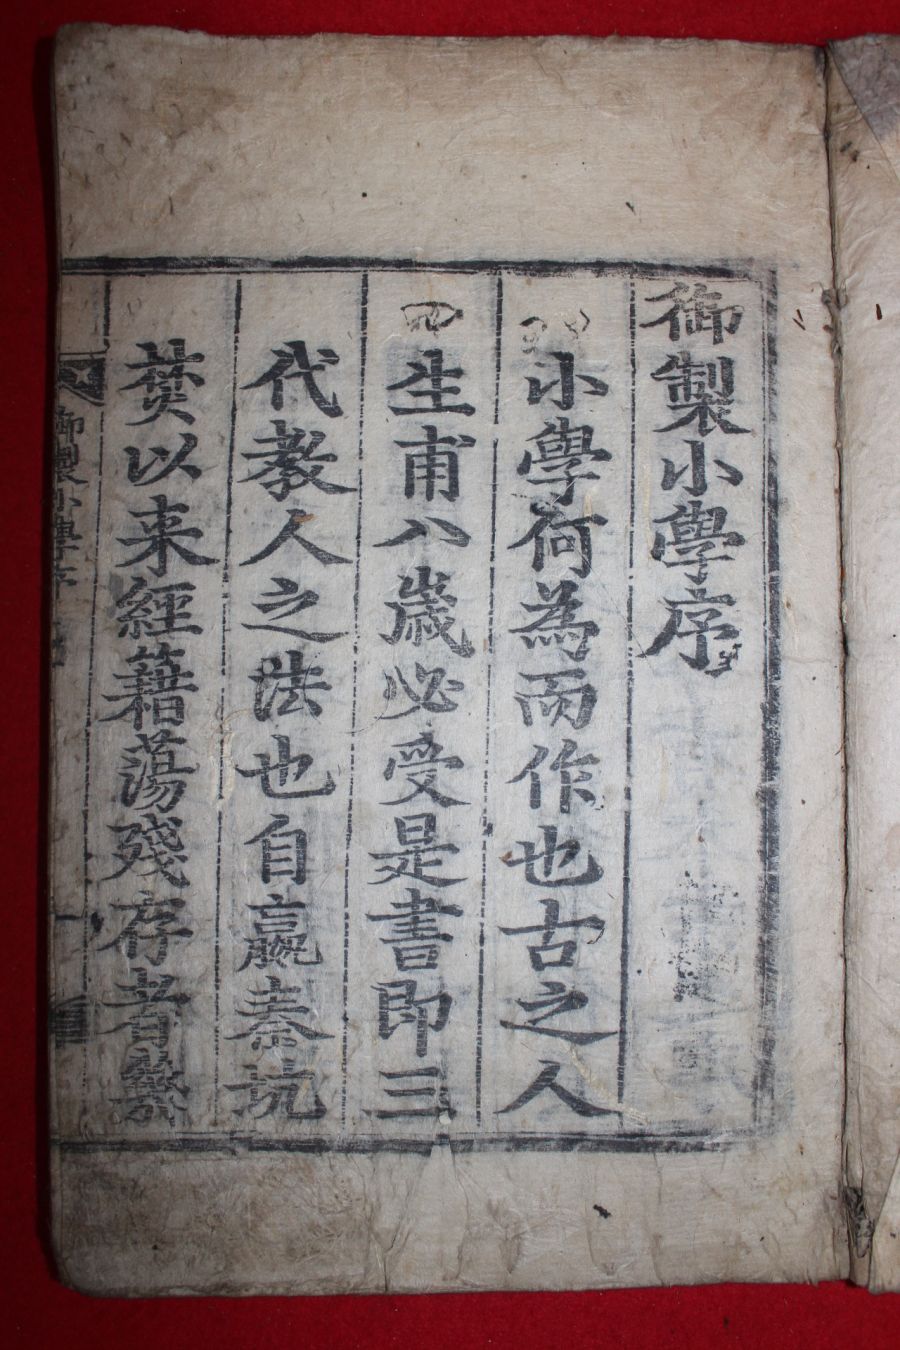 御製小學序
小學何為而作也古之人
生甫八歲必受是書即三
代教人之法也自嬴秦坑
焚以来經籍蕩殘存者幾
御製小學序